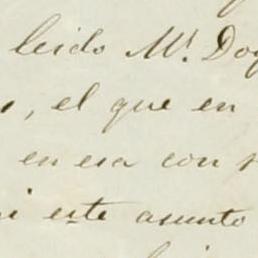 leido Mr. Dog
, el que en
en esa con
este asunto